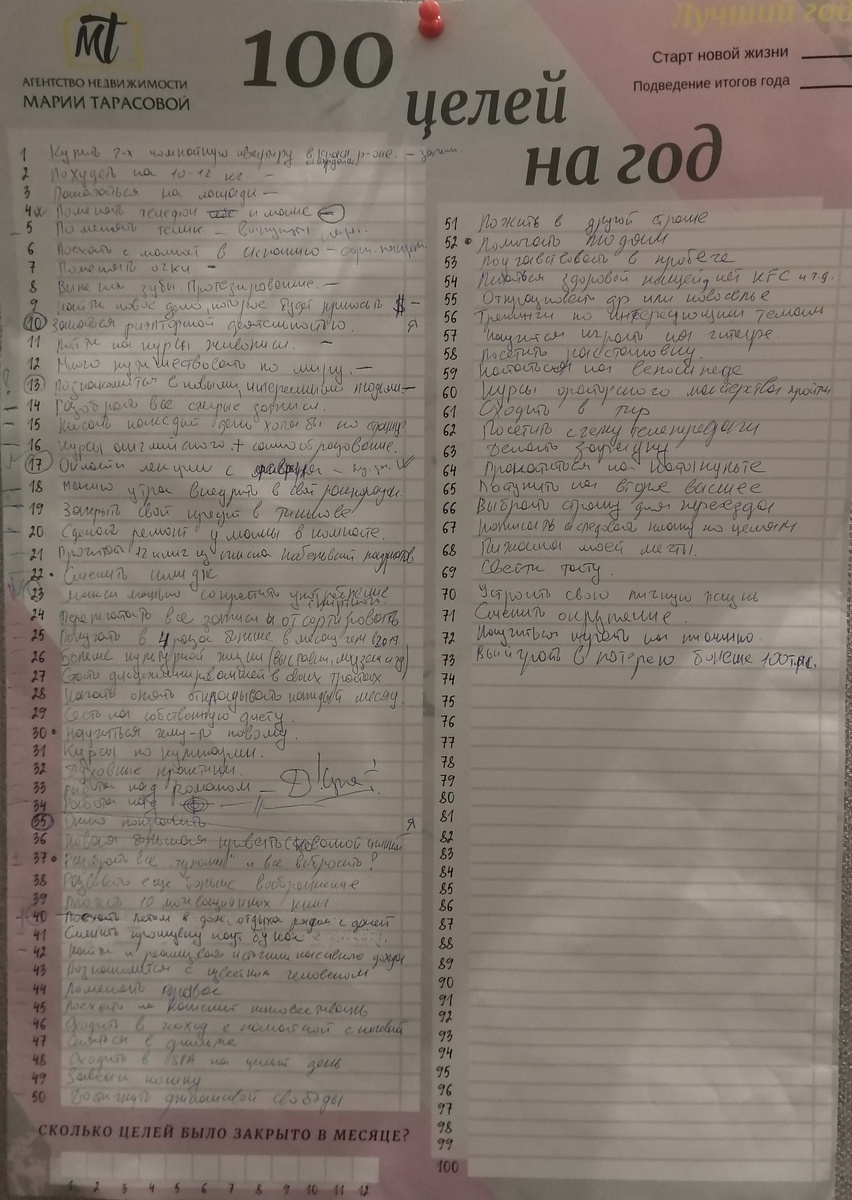 Лучший год
мт
АГЕНТСТВО НЕДВИЖИМОСТИ
МАРИИ ТАРАСОВОЙ
100
целей
на год
Старт новой жизни
Подведение итогов года
1 Купить 2-х комнатную квартиру в р-оне.
2 Похудеть на 10-12 кг. -
3 Покататься на лошади -
4 Поменять телефон и маме
5 Поменять телик -
6 Поехать с мамой в Испанию -
7 Поменять очки -
8 Вылечить зубы. Протезирование. -
9 Найти новое дело, которое будет приносить $ -
10 Заняться риэлторной деятельностью. Я
11 Пойти на курсы живописи. -
12 Много путешествовать по миру. -
13 Познакомиться с новыми, интересными людьми -
14 Разобрать все старые записи.
15 Писать каждый день хотя бы по странице
16 Курсы английского + самообразование.
17 Онлайн лекции с
18 Магию утра внедрить в свой распорядок
19 Закрыть свой кредит в Тинькове
20 Сделать ремонт у мамы в комнате.
21 Прочитать 12 книг из списка
22 Сменить имидж
23 Максимально сократить употребление
24 Перечитать все записи и отсортировать
25 Получать в 4 раза больше в месяц чем в 2019
26 Больше культурной жизни (выставки, музеи итд)
27 Стать дисциплинированней в своих
28 Начать опять откладывать каждый месяц.
29 Сесть на собственную диету.
30 Научиться чему-то новому.
31 Курсы по кулинарии.
32 Духовные практики.
33 Работа над романом
34 Работа над
35 Окно поставить Я
36 Новая большая кровать с
37 Разобрать все и все выбросить!
38 Развивать ещё больше воображение
39 10 мотивационных книг
40 Поехать летом в дом отдыха рядом с дачей
41 Сменить
42 Найти и реализовать источник пассивного дохода
43 Познакомиться с известным человеком
44 Поменять
45 Поехать на концерт
46 Сходить в поход с палаткой с ночевкой
47 Сняться в фильме
48 Сходить в SPA на целый день
49 Завести кошку
50 Достигнуть финансовой свободы
СКОЛЬКО ЦЕЛЕЙ БЫЛО ЗАКРЫТО В МЕСЯЦЕ?
1 2 3 4 5 6 7 8 9 10 11 12
51 Пожить в другой стране
52 Помогать людям
53 Поучаствовать в пробеге
54 Питаться здоровой пищей, нет KFC и т.д.
55 Отпраздновать др или новоселье
56 Тренинги по интересующим темам
57 Научится играть на гитаре.
58 Посетить расстановку.
59 Кататься на велосипеде
60 Курсы ораторского мастерства пройти
61 Сходить в тир
62 Посетить съёмку телепередачи
63 Делать зарядку
64 Прокатиться на катамаране
65 Поступить на второе высшее
66 Выбрать страну для переезда
67 Написать и следовать плану по целям
68 Пижама моей мечты.
69 Свести тату.
70 Устроить свою личную жизнь
71 Сменить окружение.
72 Научиться играть на пианино.
73 Выиграть в лотерею больше 100т.р.
74
75
76
77
78
79
80
81
82
83
84
85
86
87
88
89
90
91
92
93
94
95
96
97
98
99
100